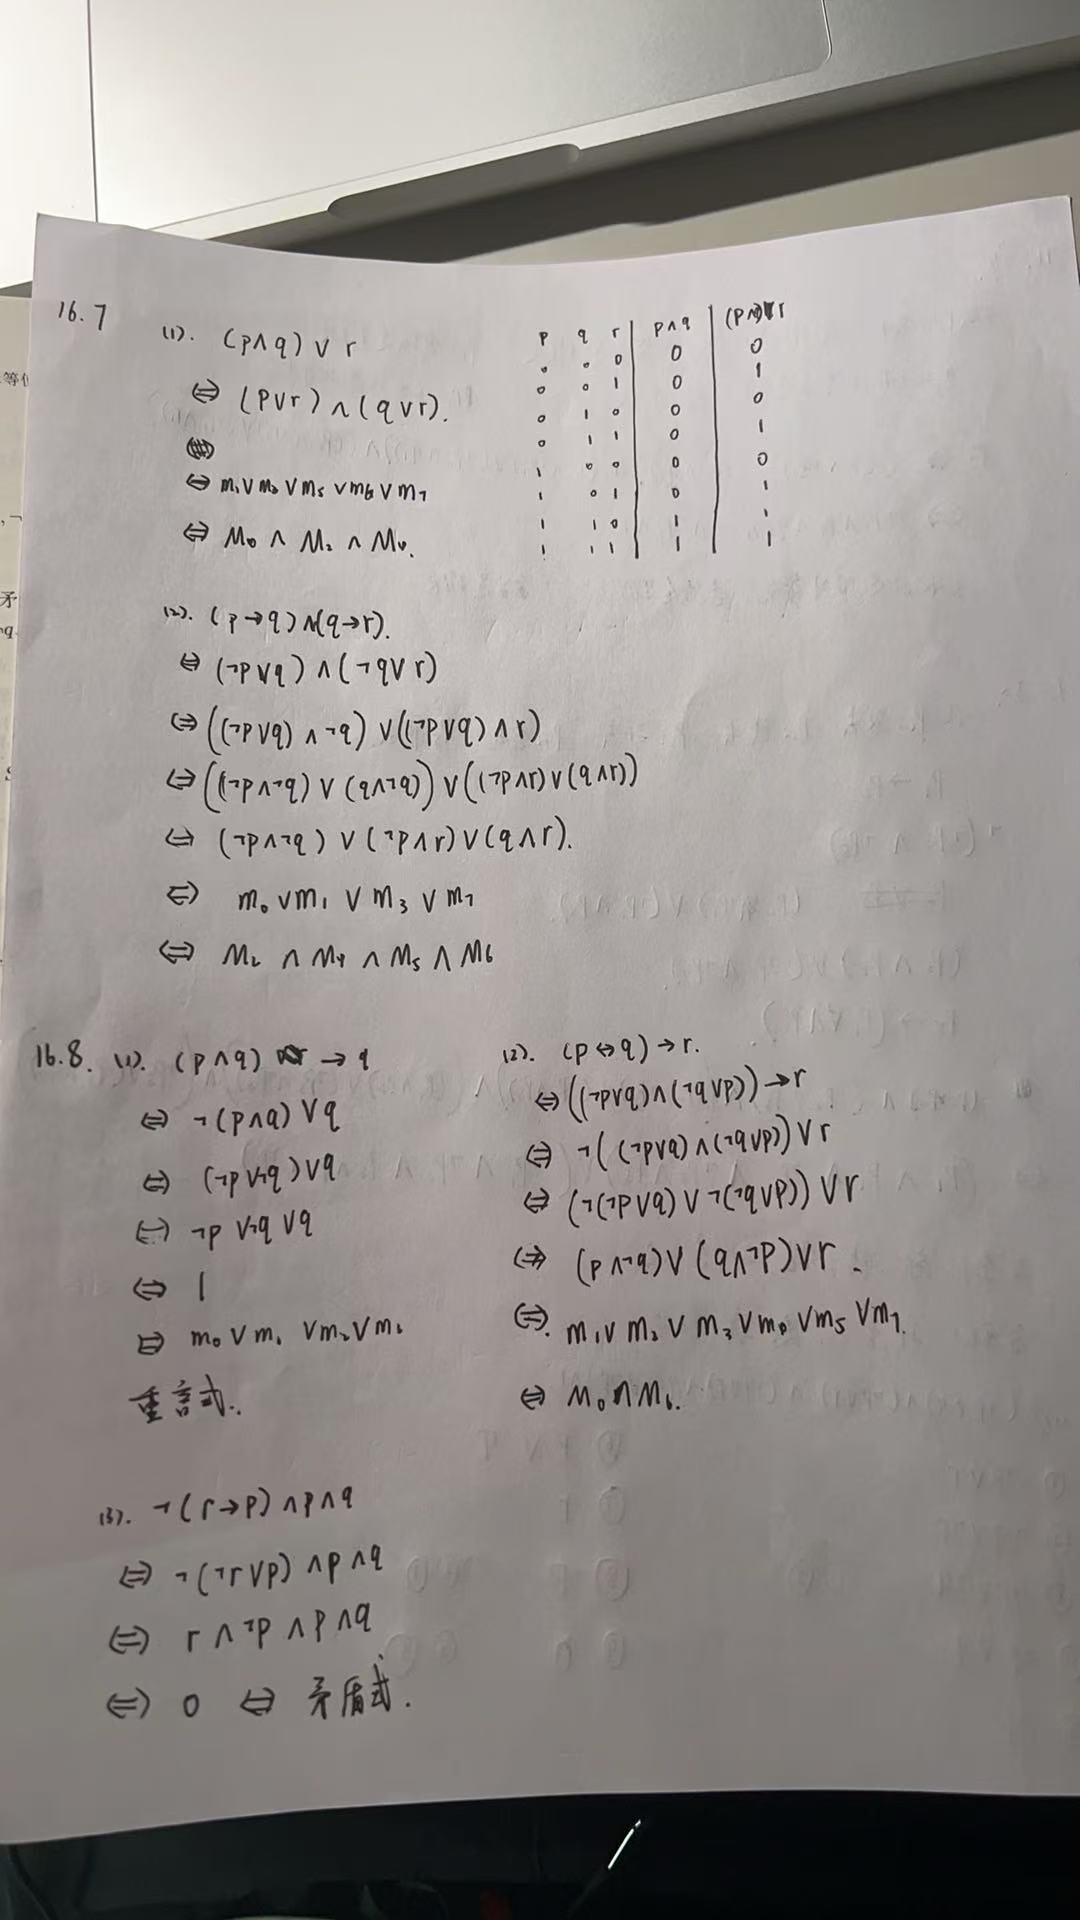 16.7
(1). (p∧q)∨r
⇔ (p∨r)∧(q∨r).
⇔ m₁∨m₃∨m₅∨m₆∨m₇
⇔ M₀∧M₂∧M₄.
p q r p∧q (p∧q)∨r
0 0 0 0 0
0 0 1 0 1
0 1 0 0 0
0 1 1 0 1
1 0 0 0 0
1 0 1 0 1
1 1 0 1 1
1 1 1 1 1
(2). (p→q)∧(q→r).
⇔ (¬p∨q)∧(¬q∨r)
⇔ ((¬p∨q)∧¬q)∨((¬p∨q)∧r)
⇔ ((¬p∧¬q)∨(q∧¬q))∨((¬p∧r)∨(q∧r))
⇔ (¬p∧¬q)∨(¬p∧r)∨(q∧r).
⇔ m₀∨m₁∨m₃∨m₇
⇔ M₂∧M₄∧M₅∧M₆
16.8. (1). (p∧q)→q
⇔ ¬(p∧q)∨q
⇔ (¬p∨¬q)∨q
⇔ ¬p∨¬q∨q
⇔ 1
⇔ m₀∨m₁∨m₂∨m₃
重言式.
(2). (p↔q)→r.
⇔ ((¬p∨q)∧(¬q∨p))→r
⇔ ¬((¬p∨q)∧(¬q∨p))∨r
⇔ (¬(¬p∨q)∨¬(¬q∨p))∨r
⇔ (p∧¬q)∨(q∧¬p)∨r.
⇔. m₁∨m₂∨m₃∨m₄∨m₅∨m₇.
⇔ M₀∧M₆.
(3). ¬(r→p)∧p∧q
⇔ ¬(¬r∨p)∧p∧q
⇔ r∧¬p∧p∧q
⇔ 0 ⇔ 矛盾式.